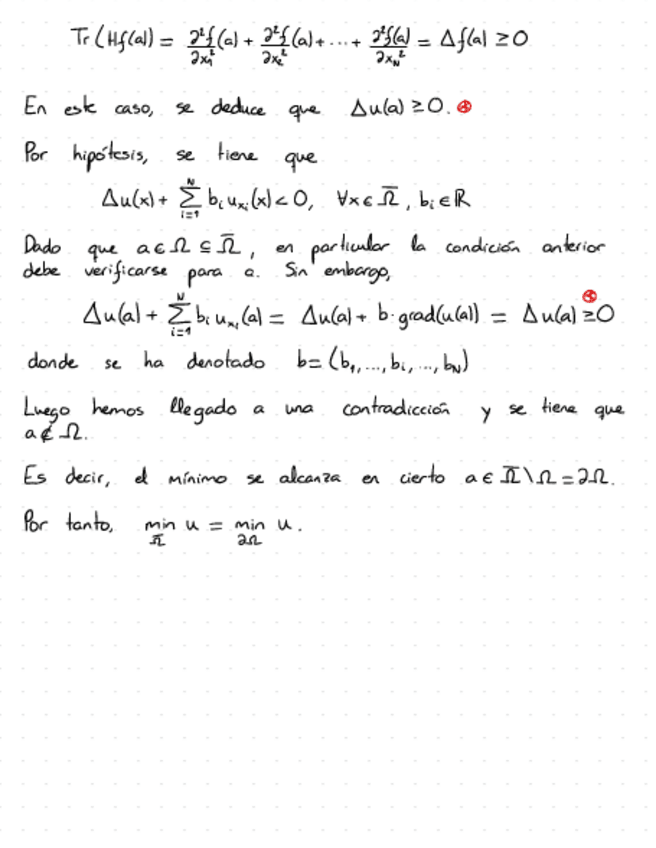 Tr(Hf(a)) = ∂²f/∂x₁²(a) + ∂²f/∂x₂²(a) + ... + ∂²f(a)/∂x_N² = Δf(a) ≥ 0
En este caso, se deduce que Δu(a) ≥ 0. ⊛
Por hipótesis, se tiene que
Δu(x) + ∑_{i=1}^{N} b_i u_{x_i}(x) < 0, ∀x ∈ Ω̅, b_i ∈ ℝ
Dado que a ∈ Ω ⊆ Ω̅, en particular la condición anterior
debe verificarse para a. Sin embargo,
Δu(a) + ∑_{i=1}^{N} b_i u_{x_i}(a) = Δu(a) + b·grad(u(a)) = Δu(a) ≥^{⊛} 0
donde se ha denotado b = (b₁, ..., b_i, ..., b_N)
Luego hemos llegado a una contradicción y se tiene que
a ∉ Ω.
Es decir, el mínimo se alcanza en cierto a ∈ Ω̅ \ Ω = ∂Ω.
Por tanto, min_{Ω̅} u = min_{∂Ω} u.